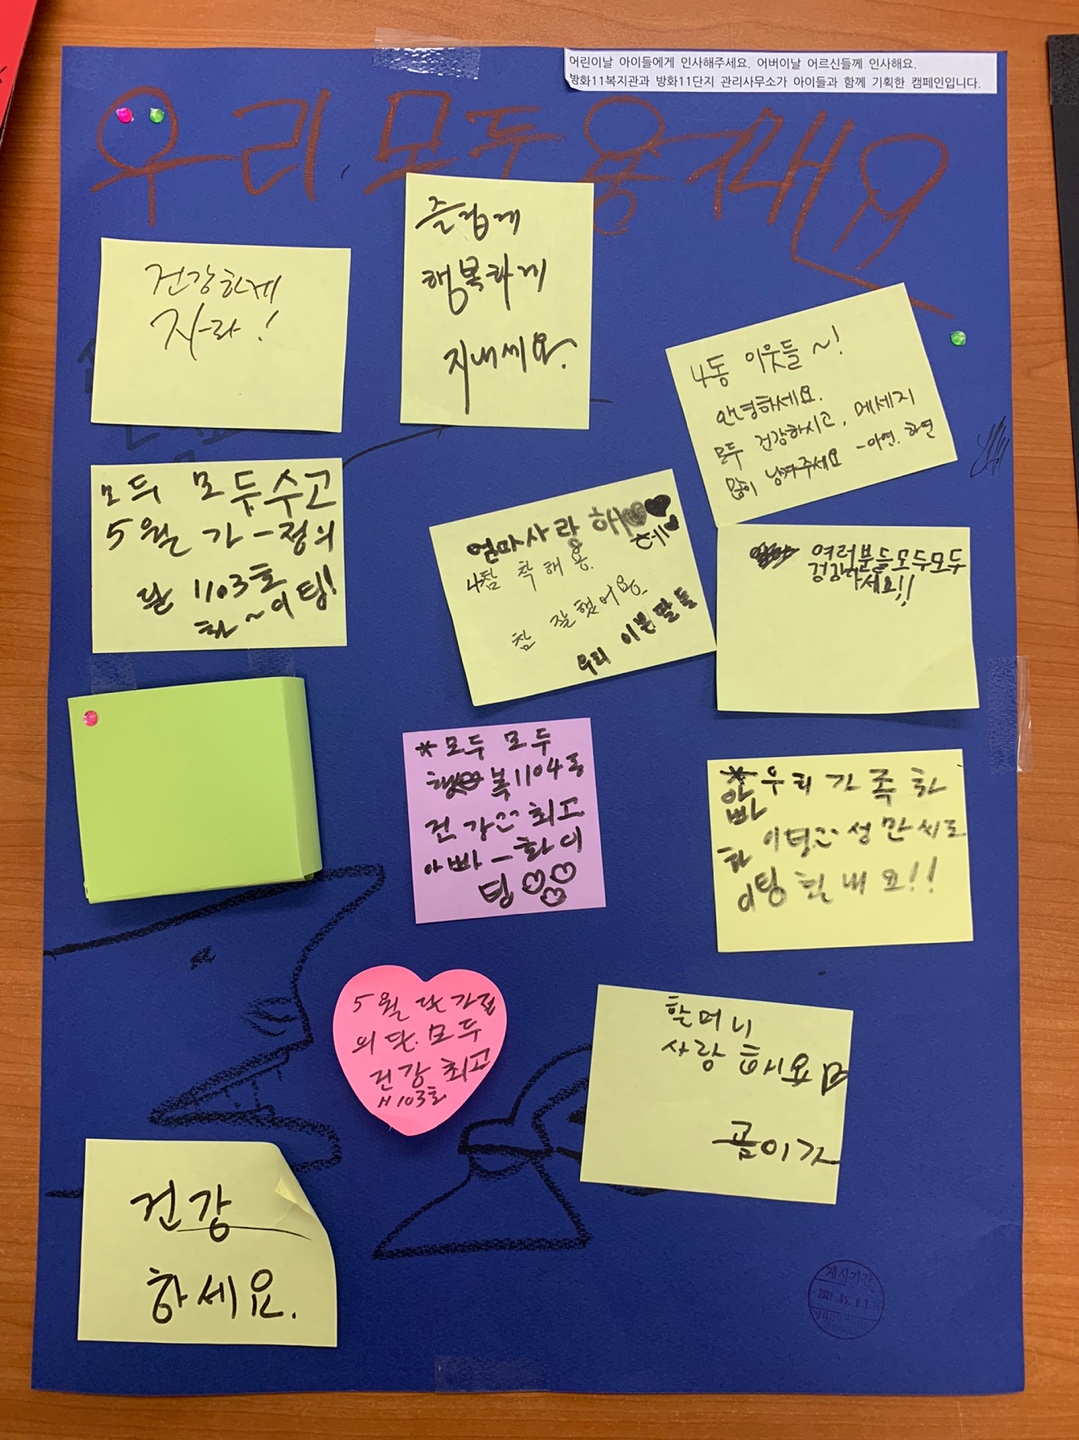 어린이날 아이들에게 인사해주세요. 어버이날 어르신들께 인사해요.
방화11복지관과 방화11단지 관리사무소가 아이들과 함께 기획한 캠페인입니다.
우리 모두 용기내요
건강하게
자라!
즐겁게
행복하게
지내세요.
4동 이웃들~!
안녕하세요.
모두 건강하시고, 메세지
많이 남겨주세요 -아연. 하연
모두 모두수고
5월 가-정의
달 1103호
화~이팅!
엄마사랑해
착해용.
참 잘했어요.
우리 이쁜딸들
여러분들모두모두
건강하세요!!
*모두 모두
행복1104동
건강 최고
아빠-화이
팅
*우리가족화
아빠
이팅 성만세로
화이팅 힘내요!!
5월 달 가정
의 달. 모두
건강 최고
1103호
할머니
사랑해요
곰이가
건강
하세요.
게시기간